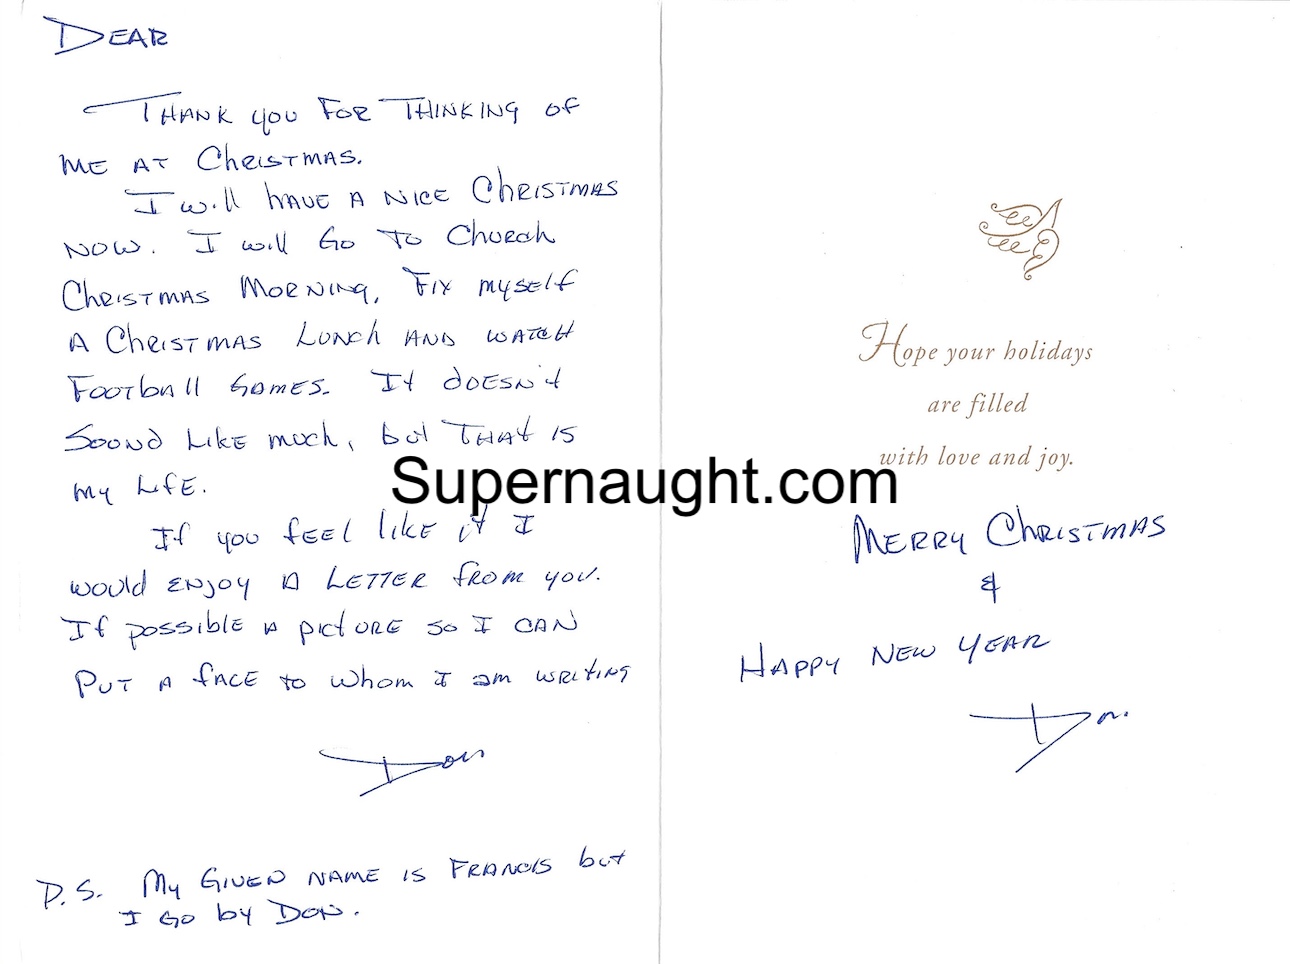 DEAR
THANK YOU FOR THINKING OF
ME AT CHRISTMAS.
I will HAVE A NICE CHRISTMAS
NOW. I will GO TO CHURCH
CHRISTMAS MORNING, FIX MYSELF
A CHRISTMAS LUNCH AND WATCH
FOOTBALL GAMES. IT DOESN'T
SOUND LIKE MUCH, but THAT IS
MY LIFE.
If you feel like it I
would ENJOY A LETTER from you.
If possible A picture so I CAN
PUT A FACE to whom I am writing
Don
P.S. My GIVEN NAME IS FRANCIS but
I GO by DON.
Hope your holidays
are filled
with love and joy.
MERRY CHRISTMAS
&
HAPPY NEW YEAR
Don
Supernaught.com